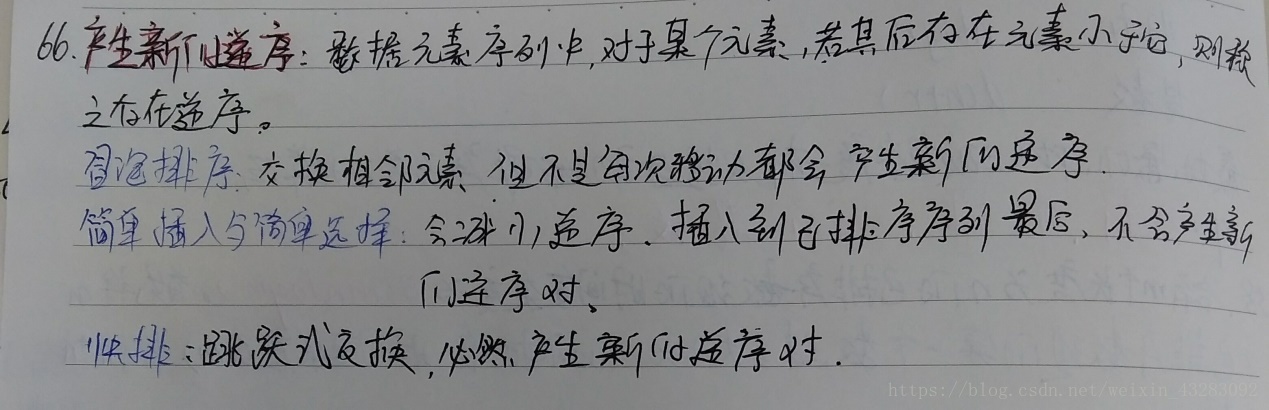 66.产生新的逆序：数据元素序列中,对于某个元素,若其后存在元素小于它,则称
之存在逆序。
冒泡排序：交换相邻元素,但不是每次移动都会产生新的逆序.
简单插入与简单选择：会减小逆序、插入到已排序序列最后、不会产生新
的逆序对、
快排：跳跃式交换,必然产生新的逆序对.
https://blog.csdn.net/weixin_43283092